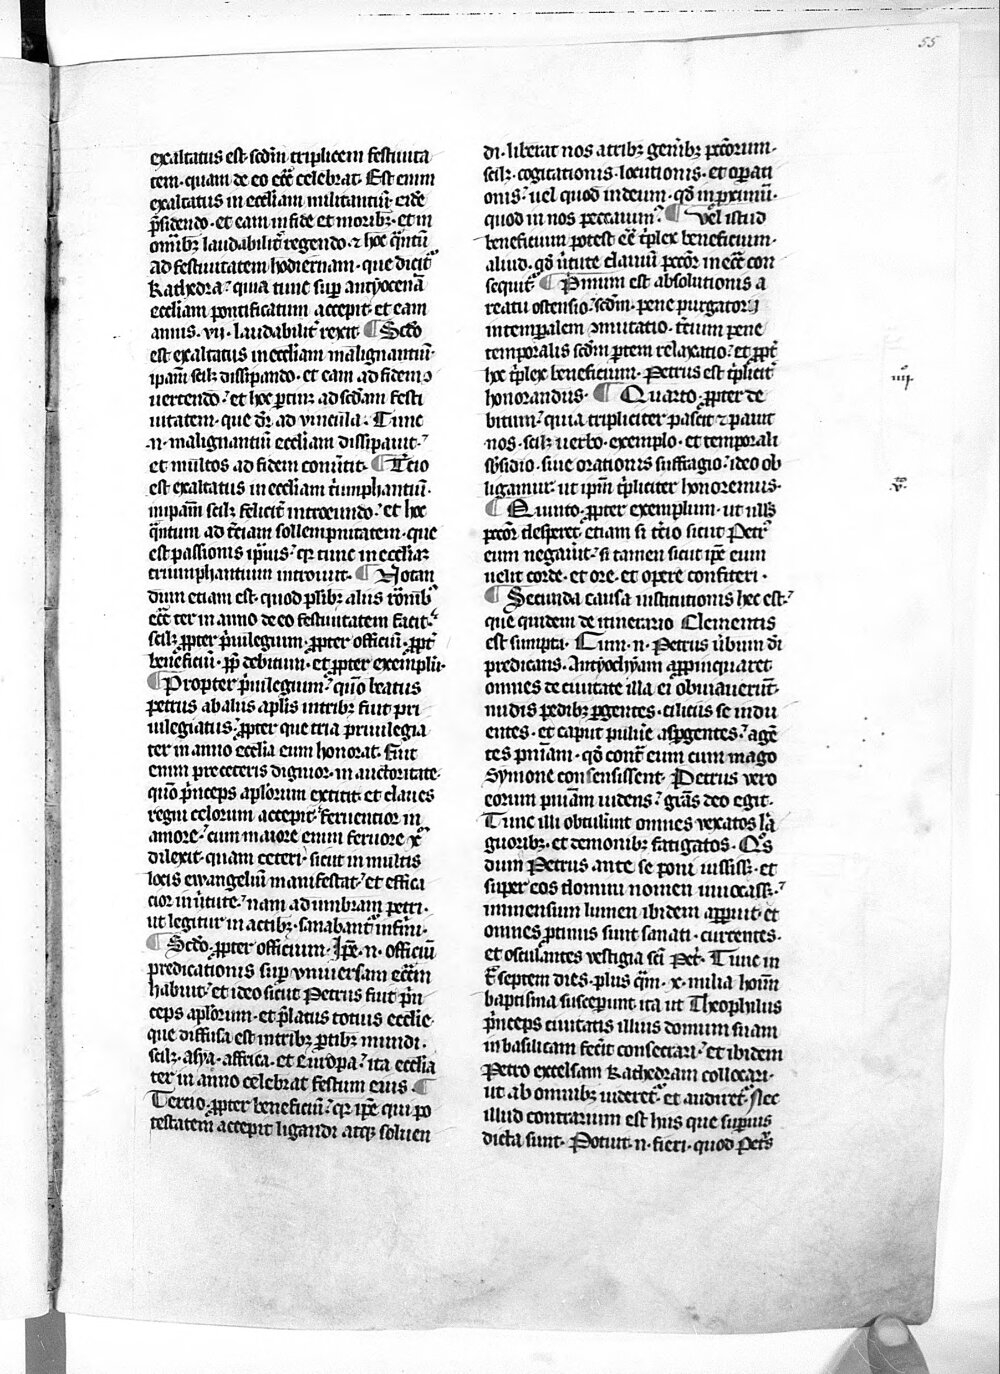 55
exaltatus est scdm triplicem festiuita
tem quam de eo eccẽ celebrat. Est enim
exaltatus in eccliam militantiũ. eide
p̃sidendo. et eam in fide et moribꝫ. et in
om̃ibꝫ laudabilit̃ regendo. ⁊ hoc q̃ntũ
ad festiuitatem hodiernam. que dicit᷑
Kathedra. quia tunc sup̃ antyocenã
eccliam pontificatum accepit. et eam
annis. vii. laudabilit̃ rexit. ¶ Scdo
est exaltatus in eccliam malignantiũ.
ip̃am scilꝫ dissipando. et eam ad fidem ↄ
uertendo. et hoc ꝑtinꝫ ad scdam festi
uitatem. que dr̃ ad vincula. Tunc
.n. malignantiũ eccliam dissipauit.
et multos ad fidem conũtit. ¶ T̃cio
est exaltatus in eccliam t̃umphantiũ.
in ip̃am scilꝫ felicit̃ introeundo. et hoc
q̃ntum ad t̃ciam sollempnitatem. que
est passionis ip̃ius. qꝛ tunc in eccliaꝫ
triumphantium introiuit. ¶ Notan
dum etiam est. quod plibꝫ aliis rõnibꝫ
eccẽ ter in anno de eo festiuitatem facit.
scilꝫ ꝓpter p̃uilegium. ꝓpter officiũ. ꝓpt̃
beneficiũ. ꝓp̃ debitum. et ꝓpter exemplũ.
¶ Propter p̃uilegium. quo beatus
petrus ab aliis aplis in tribꝫ fuit pri
uilegiatus. ꝓpter que tria priuilegia
ter in anno ecclia eum honorat. Fuit
enim pre ceteris dignior. in auctoritate.
quo p̃nceps aplorum extitit. et claues
regni celorum accepit. Feruentior in
amore. cum maiore enim feruore xp̃m
dilexit. quam ceteri. sicut in multis
locis ewangeliũ manifestat. et effica
cior in ũtute. nam ad umbram petri.
ut legitur in actibꝫ. sanabant᷑ infirmi.
¶ Scdo. ꝓpter officium. Ip̃e .n. officiũ
predicationis sup̃ vniuersam eccliam
habuit. et ideo sicut Petrus fuit p̃n
ceps aplorum. et p̃latus totius ecclie.
que diffusa est in tribꝫ ꝑtibꝫ mundi.
scilꝫ. asya. affrica. et Europa. ita ecclia
ter in anno celebrat festum eius. ¶
Tercio ꝓpter beneficiũ. qꝛ ip̃e qui po
testatem accepit ligandi atqꝫ soluen
di. liberat nos a tribꝫ genĩbꝫ pctõrum.
scilꝫ. cogitationis. locutionis. et oꝑati
onis. uel quod in deum. qđ in ꝓximũ.
quod in nos peccauim᷑. ¶ Vel istud
beneficium potest eẽ t̃plex beneficium.
aliud. qđ ũtute clauiũ pctõr in eccẽ con
sequit᷑. ¶ Primum est absolutionis a
reatu ostensio. scdm. pene purgatorij
in temꝑalem ↄmutatio. t̃cium pene
temporalis scdm ꝑtem relaxatio. et ꝓpt̃
hoc t̃plex beneficium. Petrus est t̃plicit̃
honorandus. ¶ Quarto. ꝓpter de
bitum. quia tripliciter pascit ⁊ pauit
nos. scilꝫ uerbo. exemplo. et temporali
sb̃sidio. siue orationis suffragio. ideo ob
ligamur. ut ip̃m t̃pliciter honoremus.
¶ Quinto. ꝓpter exemplum. ut nullꝰ
pctõr desperet. etiam si t̃cio sicut Petrꝰ
eum negauit. si tamen sicut ip̃e eum
uelit corde. et ore. et opere confiteri.
¶ Secunda causa institutionis hec est.
que quidem de itinerario Clementis
est sumpta. Cum .n. Petrus ũbum di
predicans. Antyochyam appinquaret
omnes de ciuitate illa ei obuiauerunt.
nudis pedibꝫ ꝑgentes. ciliciis se indu
entes. et caput puluĕ aspergentes. agẽ
tes pniam. qđ cont̃ eum cum mago
Symone consensissent. Petrus vero
eorum pniam uidens. grãs deo egit.
Tunc illi obtulerunt omnes vexatos lã
guoribꝫ. et demonibꝫ fatigatos. Qꝰs
dum Petrus ante se poni iussissꝫ. et
super eos domini nomen inuocassꝫ.
immensum lumen ibidem apparuit. et
omnes protinus sunt sanati. currentes.
et osculantes vestigia sci Pet̃. Tunc in
fra septem dies. plus q̃m. x. milia homĩ
baptisma susceperunt ita ut Theophilus
p̃nceps ciuitatis illius domum suam
in basilicam fecit consecrari. et ibidem
Petro excelsam Kathedram collocari.
ut ab omnibꝫ uideret᷑. et audiret᷑. Nec
illud contrarium est hiis que superius
dicta sunt. Potuit .n. fieri. quod Petrꝰ
iiij
v